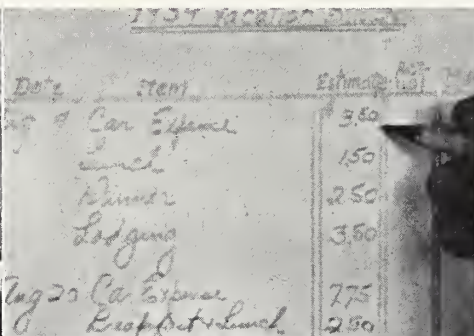 1939 Vacation
Date Item Estimate
Aug 9 Car Expense 3.50
Lunch 1.50
Dinner 2.50
Lodging 3.50
Aug 20 Car Expense 7.75
Breakfast & Lunch 2.50